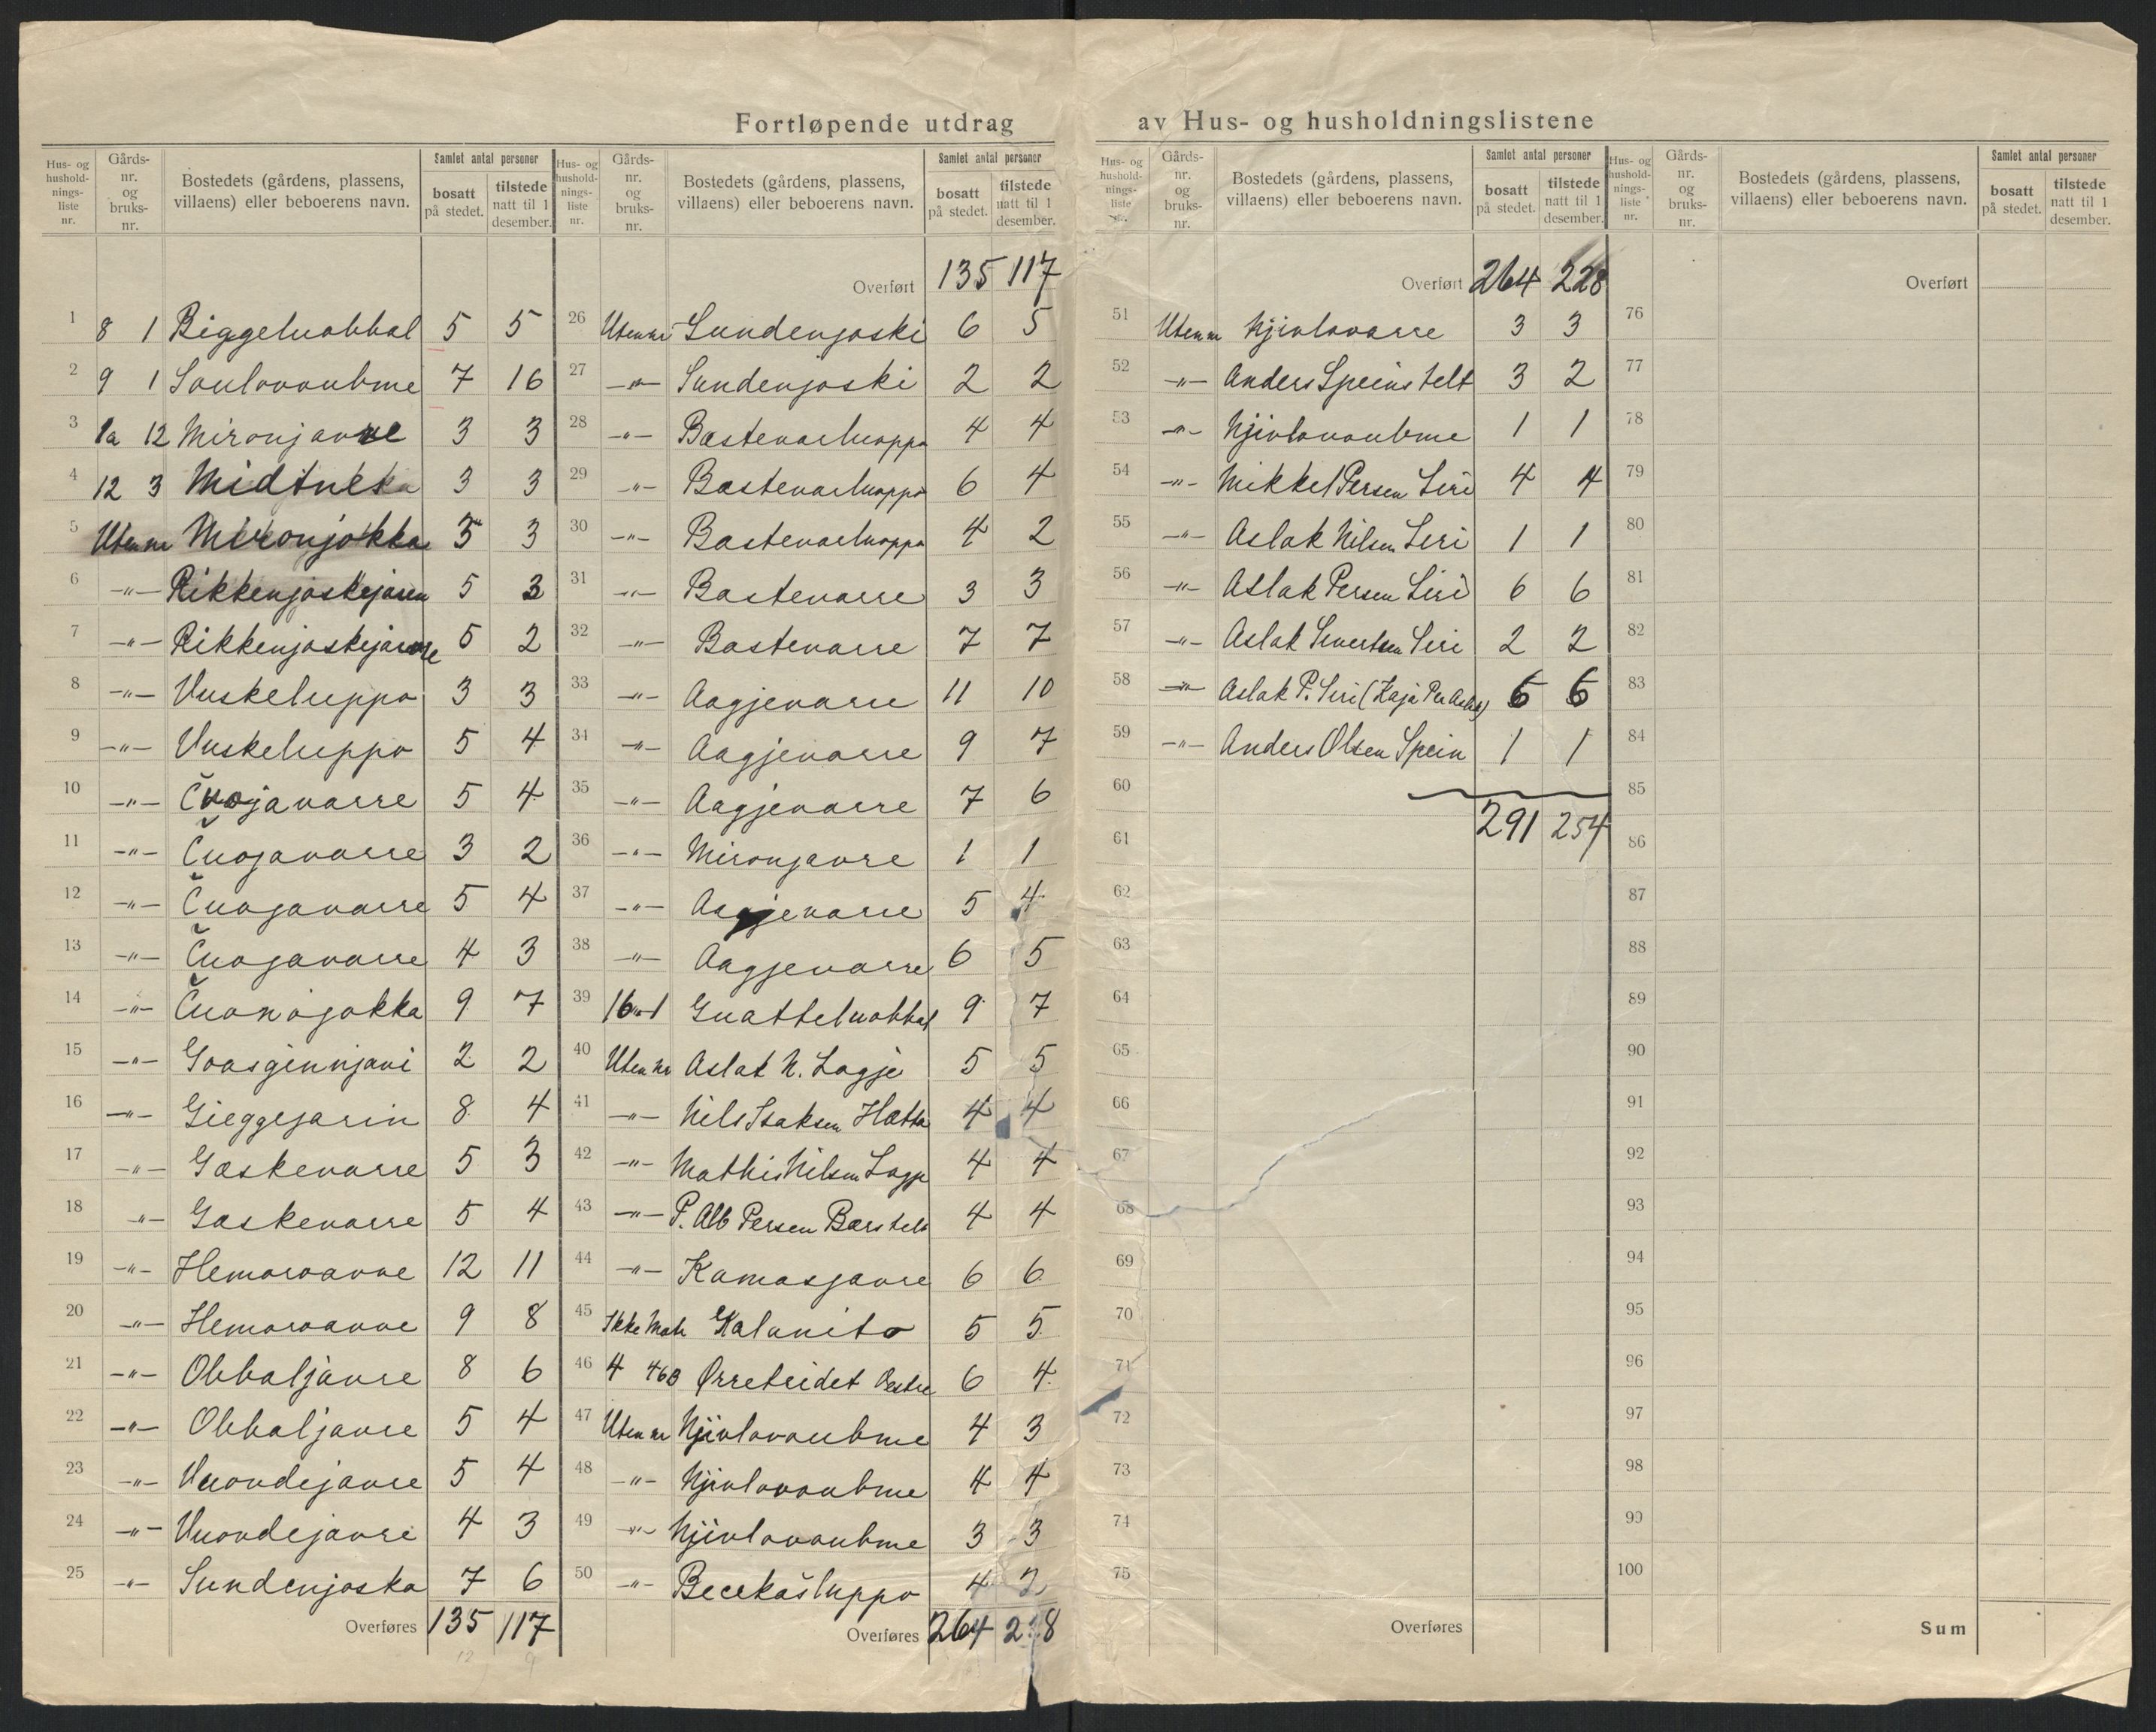 Fortløpende utdrag av Hus- og husholdningslistene
Hus- og husholdnings-liste nr. Gårds-nr. og bruks-nr. Bostedets (gårdens, plassens, villaens) eller beboerens navn. Samlet antal personer bosatt på stedet. tilstede natt til 1 desember.
1 8 1 Biggeluobbal 5 5
2 9 1 Soulovoubme 7 16
3 1a 12 Mironjavre 3 3
4 12 3 3 3
5 Uten nr Mironjokka 3 3
6 -"- Rikkenjaskejaren 5 3
7 -"- Rikkenjaskejavre 5 2
8 -"- Vuskeluppo 3 3
9 -"- Vuskeluppo 5 4
10 -"- Čuojavarre 5 4
11 -"- Čuojavarre 3 2
12 -"- Čuojavarre 5 4
13 -"- Čuojavarre 4 3
14 -"- Čuonojokka 9 7
15 -"- Goasginnjavi 2 2
16 -"- Gieggejarin 8 4
17 -"- Gaskevarre 5 3
18 -"- Gaskevarre 5 4
19 -"- Hemoroavve 12 11
20 -"- Hemoroavve 9 8
21 -"- Obbaljavre 8 6
22 -"- Obbaljavre 5 4
23 -"- Vuovdejavre 5 4
24 -"- Vuovdejavre 4 3
25 -"- Sundenjoska 7 6
Overføres 135 117
12 9
Hus- og husholdnings-liste nr. Gårds-nr. og bruks-nr. Bostedets (gårdens, plassens, villaens) eller beboerens navn. Samlet antal personer bosatt på stedet. tilstede natt til 1 desember.
Overført 135 117
26 Uten nr Sundenjoski 6 5
27 -"- Sundenjoski 2 2
28 -"- Bastevarluoppo 4 4
29 -"- Bastevarluoppo 6 4
30 -"- Bastevarluoppo 4 2
31 -"- Bastevarre 3 3
32 -"- Bastevarre 7 7
33 -"- Aagjevarre 11 10
34 -"- Aagjevarre 9 7
35 -"- Aagjevarre 7 6
36 -"- Mironjavre 1 1
37 -"- Aagjevarre 5 4
38 -"- Aagjevarre 6 5
39 16 1 Guatteluobbal 9 7
40 Uten nr Aslak N. Logje 5 5
41 -"- Nils Isaksen Hætta 4 4
42 -"- Mathis Nilsen Logje 4 4
43 -"- P. Alb Persen Bærs telt 4 4
44 -"- Kamasjavre 6 6
45 Ikke Matr Kalanito 5 5
46 4 46B Ørreteidet Østre 6 4
47 Uten nr Njivlovoubme 4 3
48 -"- Njivlovoubme 4 4
49 -"- Njivlovoubme 3 3
50 -"- Becekašluppo 4 2
Overføres 264 228
Hus- og husholdnings-liste nr. Gårds-nr. og bruks-nr. Bostedets (gårdens, plassens, villaens) eller beboerens navn. Samlet antal personer bosatt på stedet. tilstede natt til 1 desember.
Overført 264 228
51 Uten nr Njivlovarre 3 3
52 -"- Anders Speins telt 3 2
53 -"- Njivlovoubme 1 1
54 -"- Mikkel Persen Siri 4 4
55 -"- Aslak Nilsen Siri 1 1
56 -"- Aslak Persen Siri 6 6
57 -"- Aslak Sivertsen Siri 2 2
58 -"- Aslak P. Siri (Kaja Per Aslak) 6 6
59 -"- Anders Olsen Spein 1 1
60
61 291 254
62
63
64
65
66
67
68
69
70
71
72
73
74
75
Overføres
Hus- og husholdnings-liste nr. Gårds-nr. og bruks-nr. Bostedets (gårdens, plassens, villaens) eller beboerens navn. Samlet antal personer bosatt på stedet. tilstede natt til 1 desember.
Overført
76
77
78
79
80
81
82
83
84
85
86
87
88
89
90
91
92
93
94
95
96
97
98
99
100
Sum